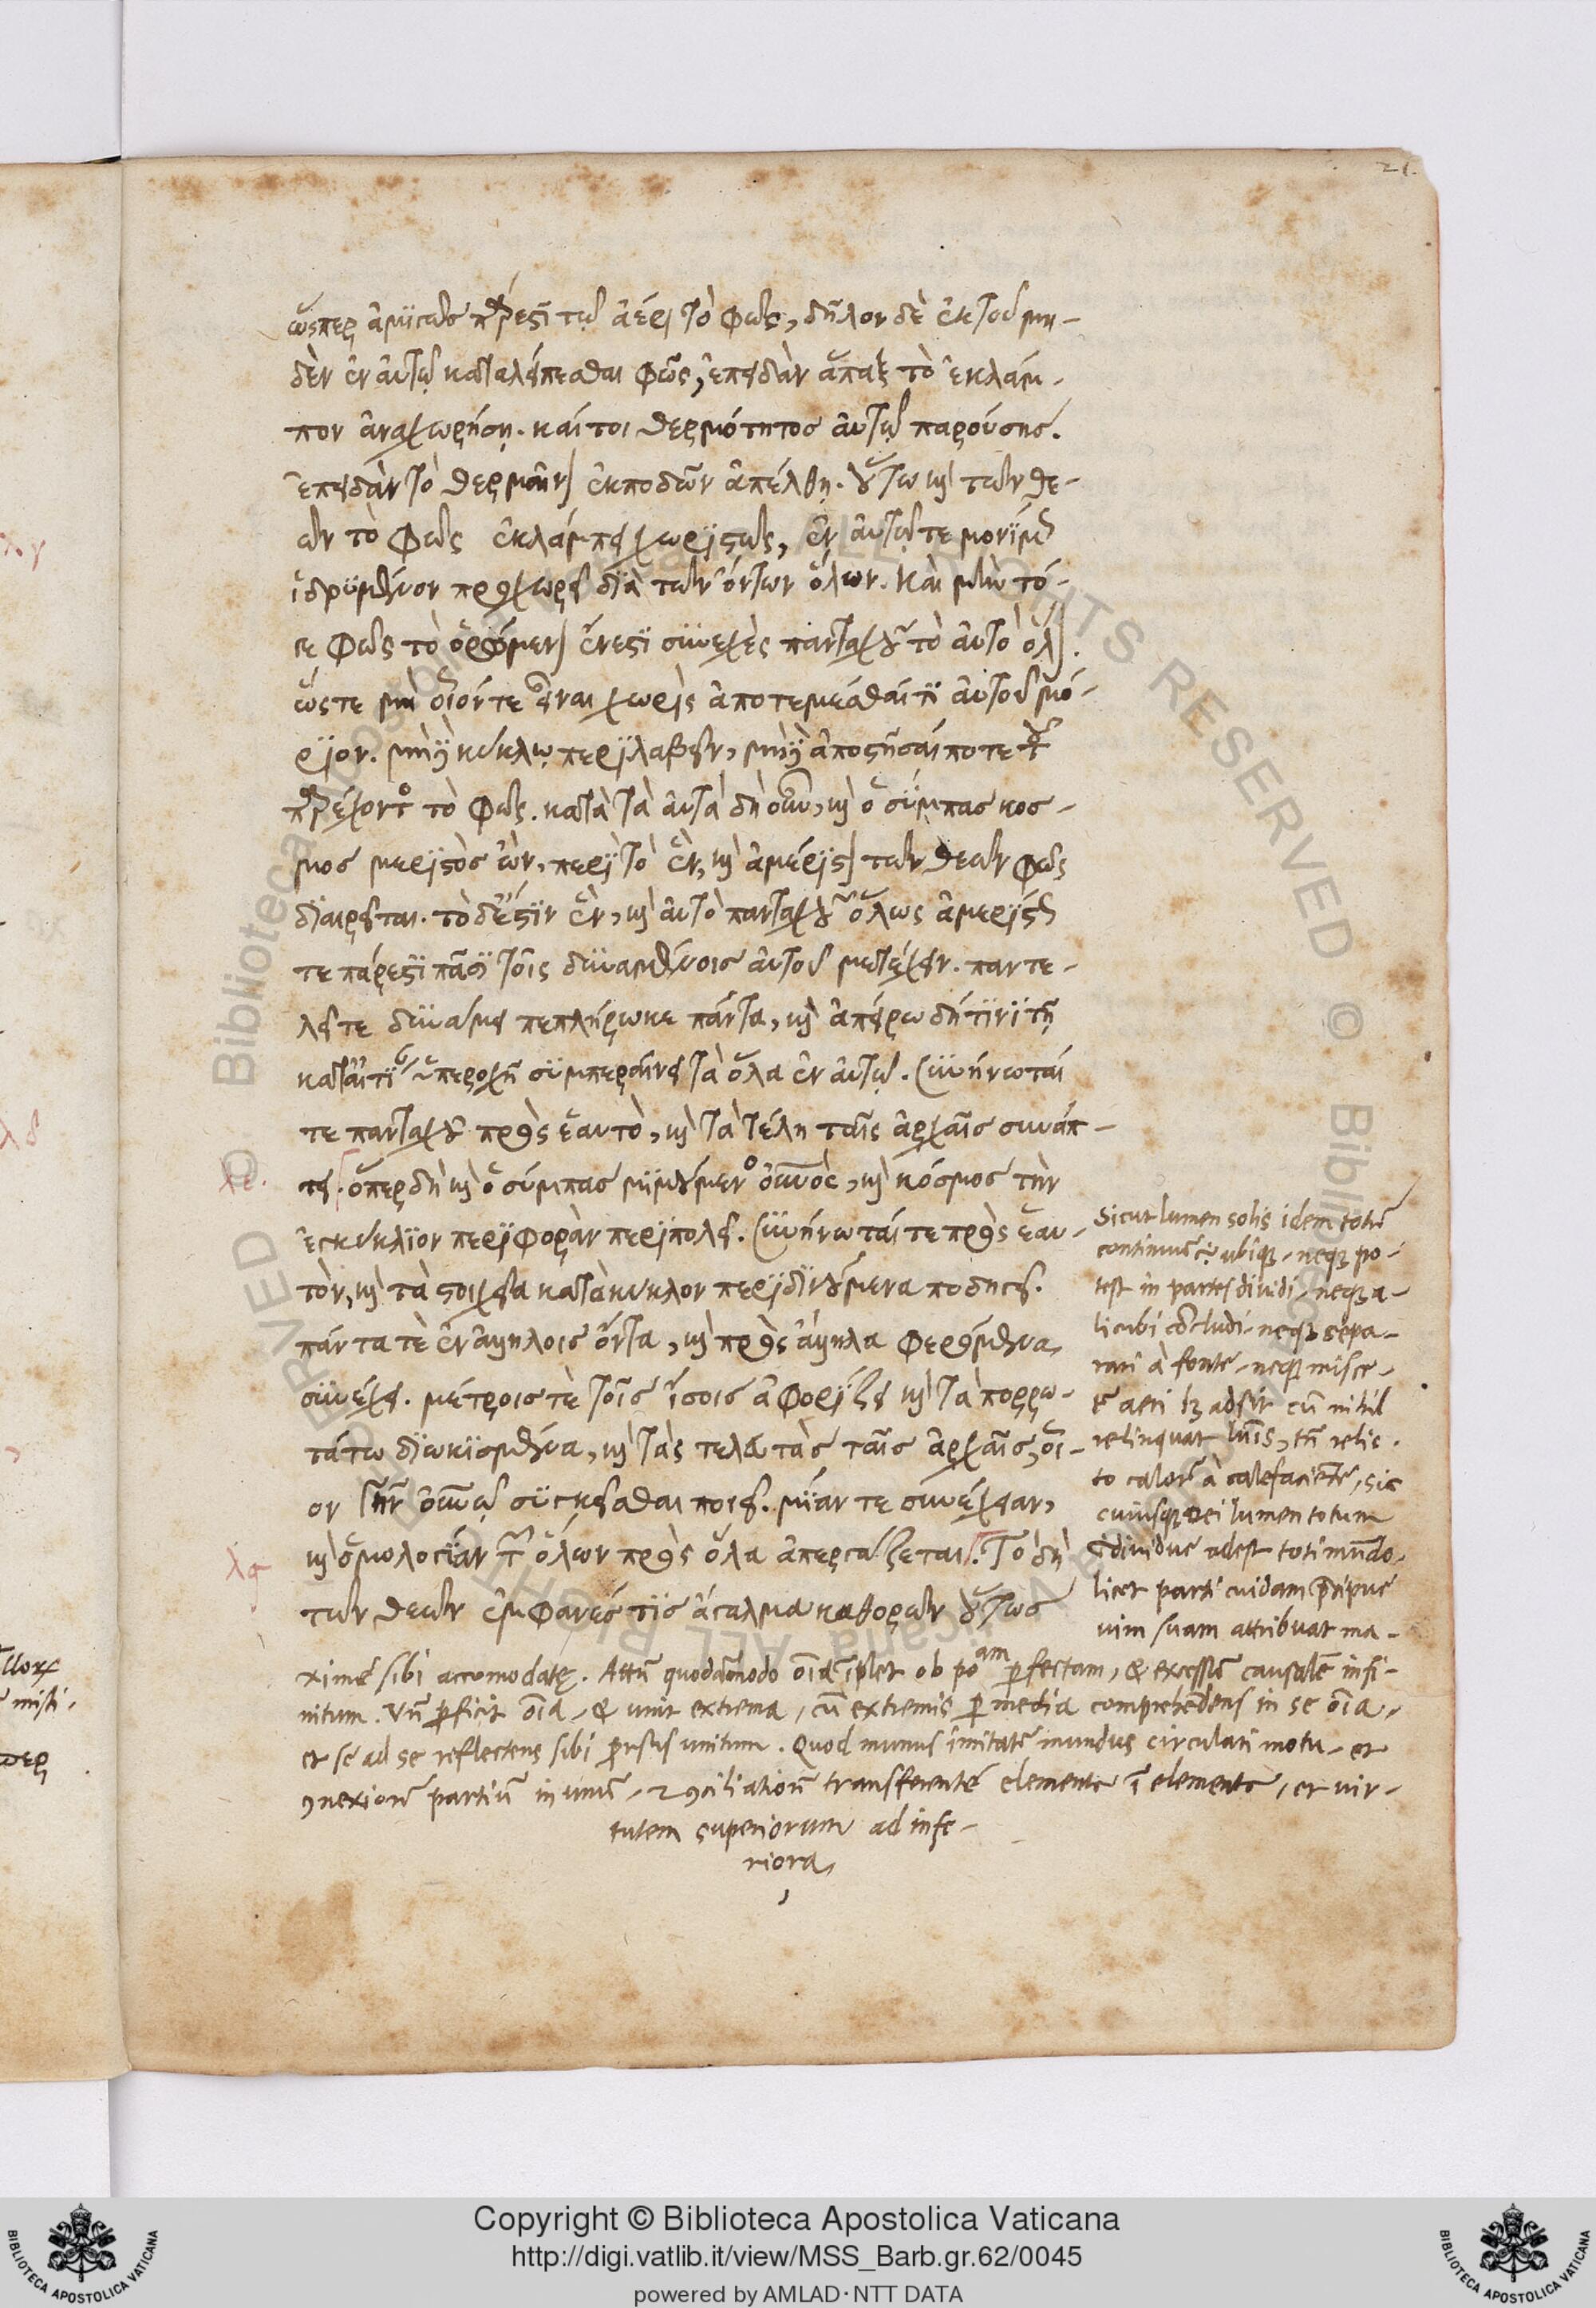 21.
ὥσπερ ἀμιγῶς πάρεστι τῷ ἀέρι τὸ φῶς, δῆλον δὲ ἐκ τοῦ μη-
δὲν ἐν αὐτῷ καταλείπεσθαι φῶς, ἐπειδὰν ἅπαξ τὸ ἐκλάμ-
πον ἀναχωρήσῃ. καίτοι θερμότητος αὐτῷ παρούσης.
ἐπειδὰν τὸ θερμαῖνον ἐκποδὼν ἀπέλθῃ. οὕτω καὶ τῶν θε-
ῶν τὸ φῶς ἐκλάμπει χωριστῶς, ἐν αὑτῷ τε μονίμως
ἱδρυμένον προχωρεῖ διὰ τῶν ὄντων ὅλων. καὶ μὴν τό-
γε φῶς τὸ ὁρώμενον ἕν ἐστι συνεχὲς πανταχοῦ τὸ αὐτὸ ὅλον.
ὥστε μὴ οἷόν τε εἶναι χωρὶς ἀποτεμέσθαί τι αὐτοῦ μό-
ριον. μηδὲ κύκλῳ περιλαβεῖν, μηδὲ ἀποστῆσαί ποτε τοῦ
παρέχοντος τὸ φῶς. κατὰ τὰ αὐτὰ δὴ οὖν, καὶ ὁ σύμπας κοσ-
μος μεριστὸς ὢν, περὶ τὸ ἓν, καὶ ἀμέριστον τῶν θεῶν φῶς
διαιρεῖται. τὸ δ' ἔστιν ἓν, καὶ αὐτὸ πανταχοῦ ὅλως ἀμερίστως
τε πάρεστι πᾶσι τοῖς δυναμένοις αὐτοῦ μετέχειν. παντε-
λεῖ τε δυνάμει πεπλήρωκε πάντα, καὶ ἀπείρῳ δή τινι τῇ
κατ' αἰτίαν ὑπεροχῇ συμπεραίνει τὰ ὅλα ἐν αὑτῷ. συνήνωταί
τε πανταχοῦ πρὸς ἑαυτὸ, καὶ τὰ τέλη ταῖς ἀρχαῖς συνάπ-
λε.
τει. ὅπερ δὴ καὶ ὁ σύμπας μιμούμενος οὐρανὸς, καὶ κόσμος τὴν
ἐγκύκλιον περιφορὰν περιπολεῖ. συνήνωταί τε πρὸς ἑαυ-
τὸν, καὶ τὰ στοιχεῖα κατὰ κύκλον περιδινούμενα ποδηγεῖ.
πάντα τὲ ἐν ἀλλήλοις ὄντα, καὶ πρὸς ἄλληλα φερόμενα,
συνέχει. μέτροις τὲ τοῖς ἴσοις ἀφορίζει καὶ τὰ πορρω-
τάτω διῳκισμένα, καὶ τὰς τελευτὰς ταῖς ἀρχαῖς, οἷ-
ον γῆν οὐρανῷ συγκεῖσθαι ποιεῖ. μίαν τε συνέχειαν,
λς
καὶ ὁμολογίαν τῶν ὅλων πρὸς ὅλα ἀπεργάζεται. Τὸ δὴ
τῶν θεῶν ἐμφανές τις ἄγαλμα καθορῶν οὕτως
Sicut lumen solis idem totū
continuū ē ubiq; neq; po-
test in partes dividi, neq; a-
licubi cōcludi, neq; sepa-
rari à fonte, neq; misce-
r aeri lz adsit cū nihil
relinquat luīs, tn̄ relic-
to calorē à calefaciente, sic
cuiusq; Dei lumen totum
īdividuē adest toti mūdo,
licet parti cuidam p̄cipuē
vim suam attribuat ma-
ximē sibi accomodatę. Attn̄ quodāmodo oīa īplet ob poam p̄fectam, & excessū causalē infi-
nitum. Vnū p̄ficit oīa, & unit extrema, cū extremis p̄ media comprehēdens in se oīa,
et sē ad se reflectens sibi prorsus unitum. Quod munus imitatr̄ mundus circulari motu, et
ꝯnexionē partiū in unū, & ꝯciliationē transferentē elementa ī elementa, et vir-
tutem superiorum ad infe-
riora,
λγ
λδ
Copyright © Biblioteca Apostolica Vaticana
http://digi.vatlib.it/view/MSS_Barb.gr.62/0045
powered by AMLAD · NTT DATA
BIBLIOTECA APOSTOLICA VATICANA
BIBLIOTECA APOSTOLICA VATICANA